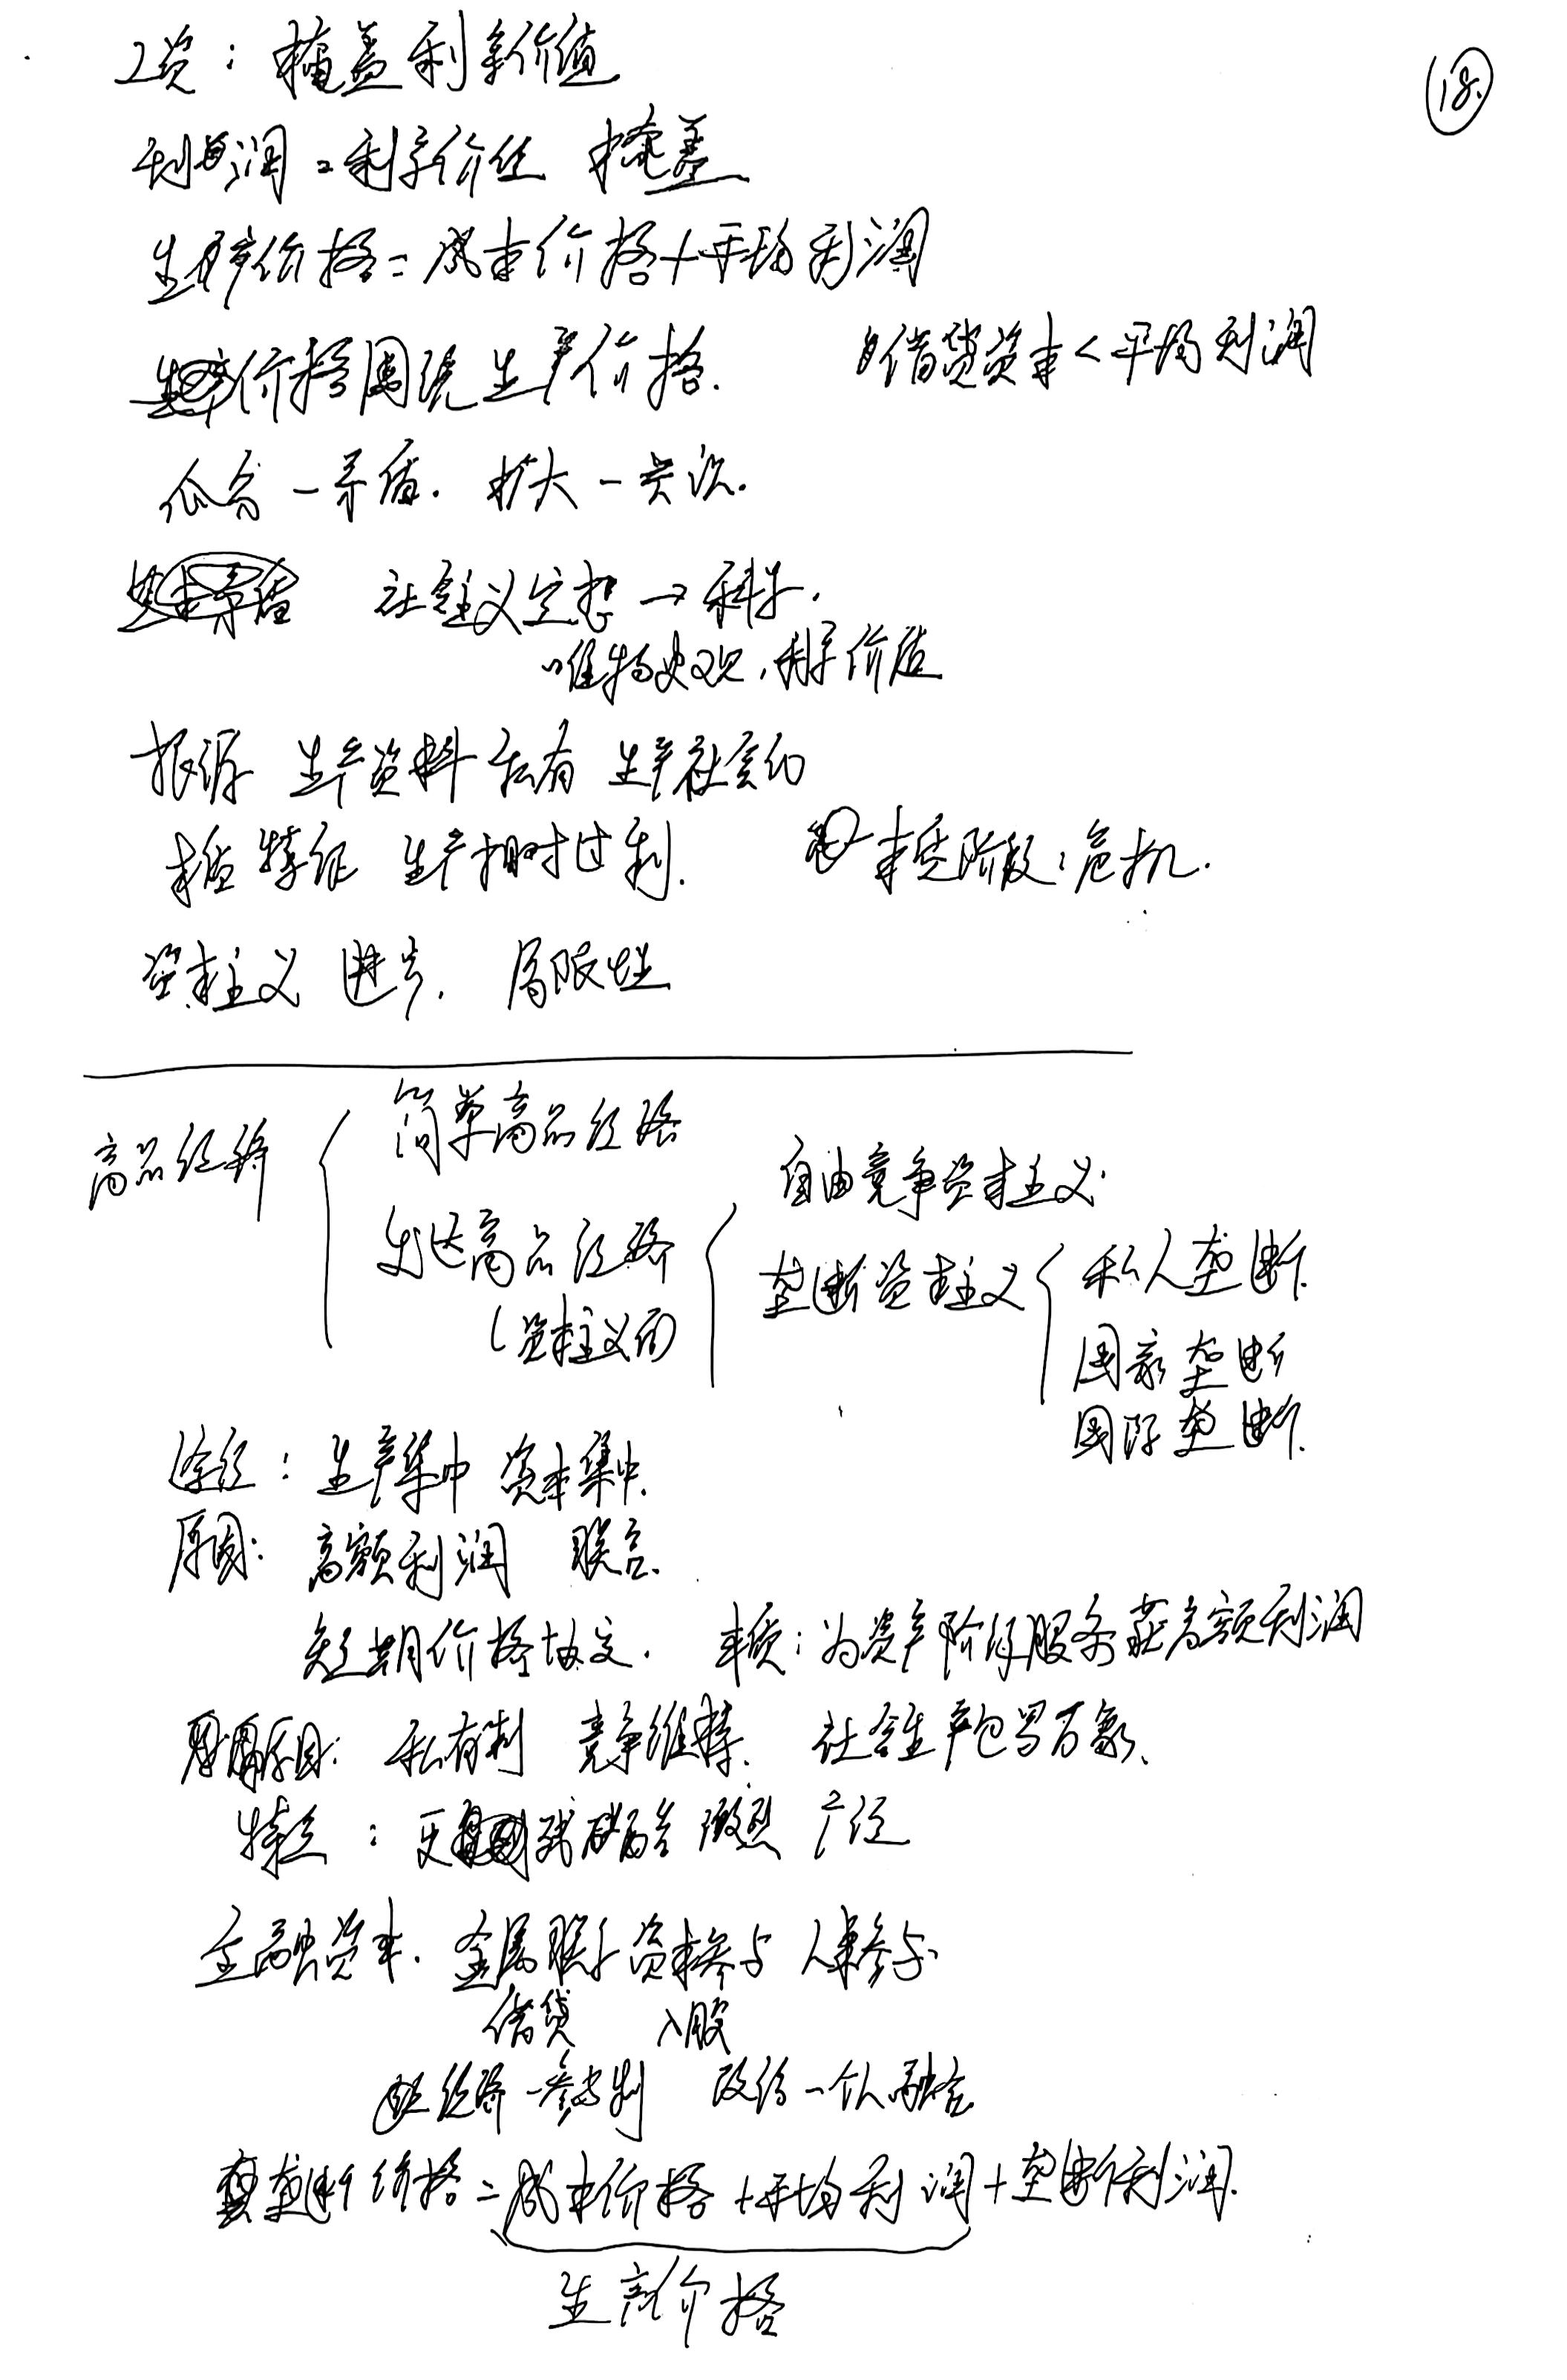 18.
工资：掩盖剩余价值
利润=剩余价值 掩盖
生产价格=成本价格+平均利润
价格围绕生产价格. 借贷资本<平均利润
一矛盾. 扩大一
社会主义空想→科学.
唯物史观,剩余价值
根源 生产资料私有 生产社会化
本质特征 生产相对过剩. 本质阶段:危机.
资本主义 进步. 局限性
商品经济 简单商品经济
发达商品经济
(资本主义的)
自由竞争资本主义
垄断资本主义 私人垄断
国家垄断
国际垄断
途径:生产集中 资本集中
原因:高额利润 联合.
短期价格协定. 本质:为资产阶级服务获高额利润
原因:私有制 竞争维持. 社会生产包罗万象.
特点:更 激烈 广泛
金融资本. 金属联 资本参与 人事参与
借贷 入股
经济一参与制 政治一个人融合
垄断价格=成本价格+平均利润+垄断利润.
生产价格